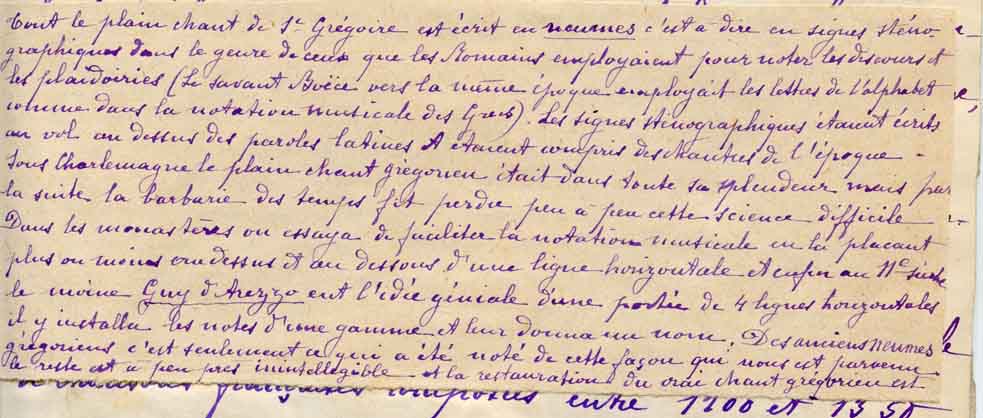 Tout le plain chant de St Grégoire est écrit en neumes c'est a dire en signes sténo-
graphiques dans le genre de ceux que les Romains employaient pour noter les discours et
les plaidoiries (Le savant Boëce vers la même époque employait les lettres de l'alphabet
comme dans la notation musicale des Grecs). Les signes sténographiques étaient écrits
au vol au dessus des paroles latines et étaient compris des chantres de l'époque -
Sous Charlemagne le plain chant grégorien était dans toute sa splendeur mais par
la suite la barbarie des temps fit perdre peu à peu cette science difficile
Dans les monastères on essaya de faciliter la notation musicale en la placant
plus ou moins au dessus et au dessous d'une ligne horizontale et enfin au 11e siècle
le moine Guy d'Arezzo eut l'idée géniale d'une portée de 4 lignes horizontales
il y installa les notes d'une gamme et leur donna un nom. Des anciens neumes
grégoriens c'est seulement ce qui a été noté de cette façon qui nous est parvenu
le reste est a peu près inintelligible et la restauration du vrai chant grégorien est
françaises composées entre 1200 et 1350